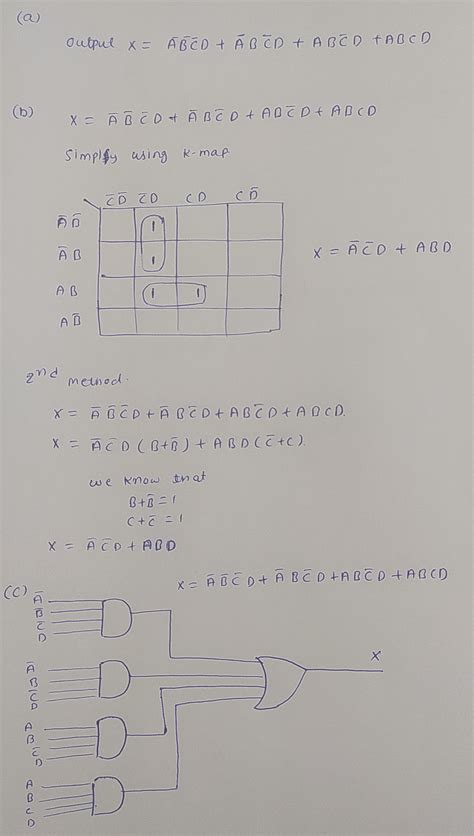 (a)
Output X = A̅B̅C̅D + A̅BC̅D + ABC̅D + ABCD
(b)
X = A̅B̅C̅D + A̅BC̅D + ABC̅D + ABCD
Simplify using k-map
C̅D̅ C̅D CD CD̅
A̅B̅ 1
A̅B 1
AB 1 1
AB̅
X = A̅C̅D + ABD
2nd method.
X = A̅B̅C̅D + A̅BC̅D + ABC̅D + ABCD.
X = A̅C̅D (B+B̅) + ABD (C̅+C).
we know that
B+B̅ = 1
C+C̅ = 1
X = A̅C̅D + ABD
X = A̅B̅C̅D + A̅BC̅D + ABC̅D + ABCD
(C)
A̅
B̅
C̅
D
A̅
B
C̅
D
A
B
C̅
D
A
B
C
D
X